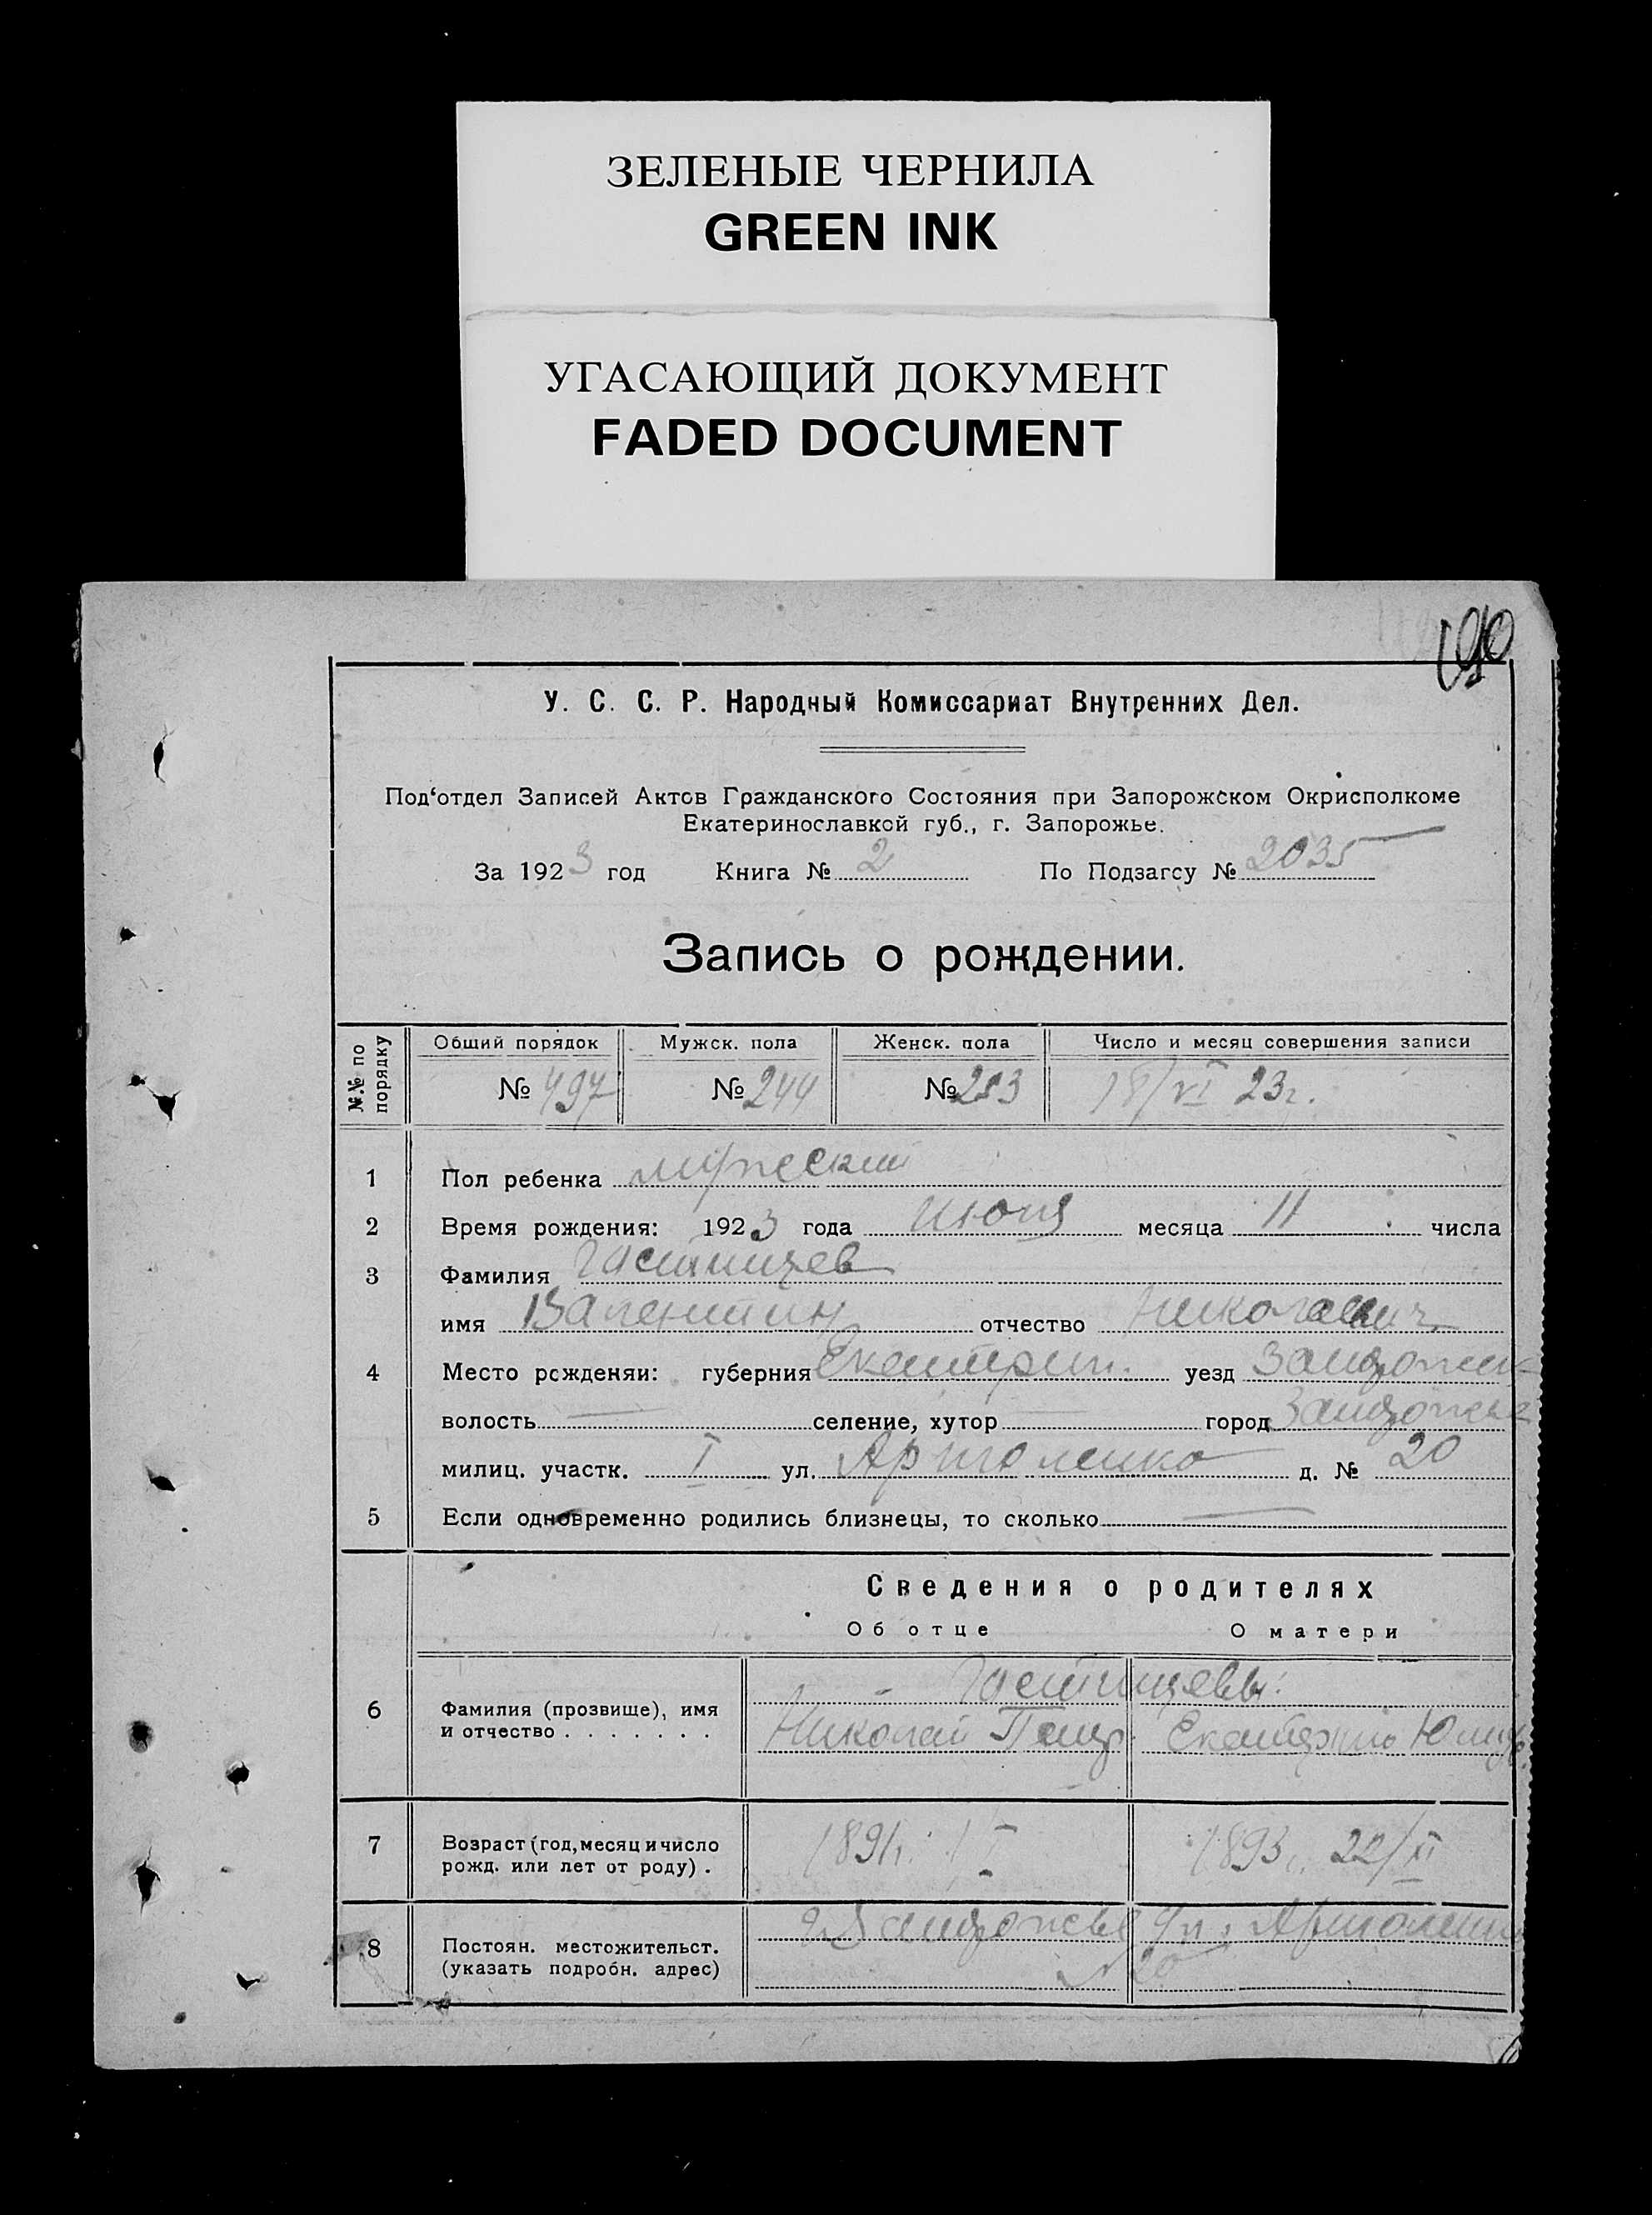 ЗЕЛЕНЫЕ ЧЕРНИЛА
GREEN INK
УГАСАЮЩИЙ ДОКУМЕНТ
FADED DOCUMENT
У. С. С. Р. Народный Комиссариат Внутренних Дел.
Под‘отдел Записей Актов Гражданского Состояния при Запорожском Окрисполкоме
Екатеринославкой губ., г. Запорожье.
За 1923 год Книга № 2 По Подзагсу № 2035
Запись о рождении.
№№ по порядку Общий порядок Мужск. пола Женск. пола Число и месяц совершения записи
№ 497 № 244 № 253 18/VI 23г.
1 Пол ребенка мужской
2 Время рождения: 1923 года июня месяца 11 числа
3 Фамилия
имя Валентин отчество Николаевич
4 Место рсжденяи: губерния Екатерин. уезд Запорожск
волость — селение, хутор — город Запорожье
милиц. участк. I ул. д. № 20
5 Если одновременно родились близнецы, то сколько —
Сведения о родителях
Об отце О матери
6 Фамилия (прозвище), имя
и отчество . . . . . . . Николай Петр. Екатерина
7 Возраст (год, месяц и число
рожд. или лет от роду) . 1893 22/XI
8 Постоян. местожительст. г. Запорожье ул.
(указать подробн. адрес) № 20